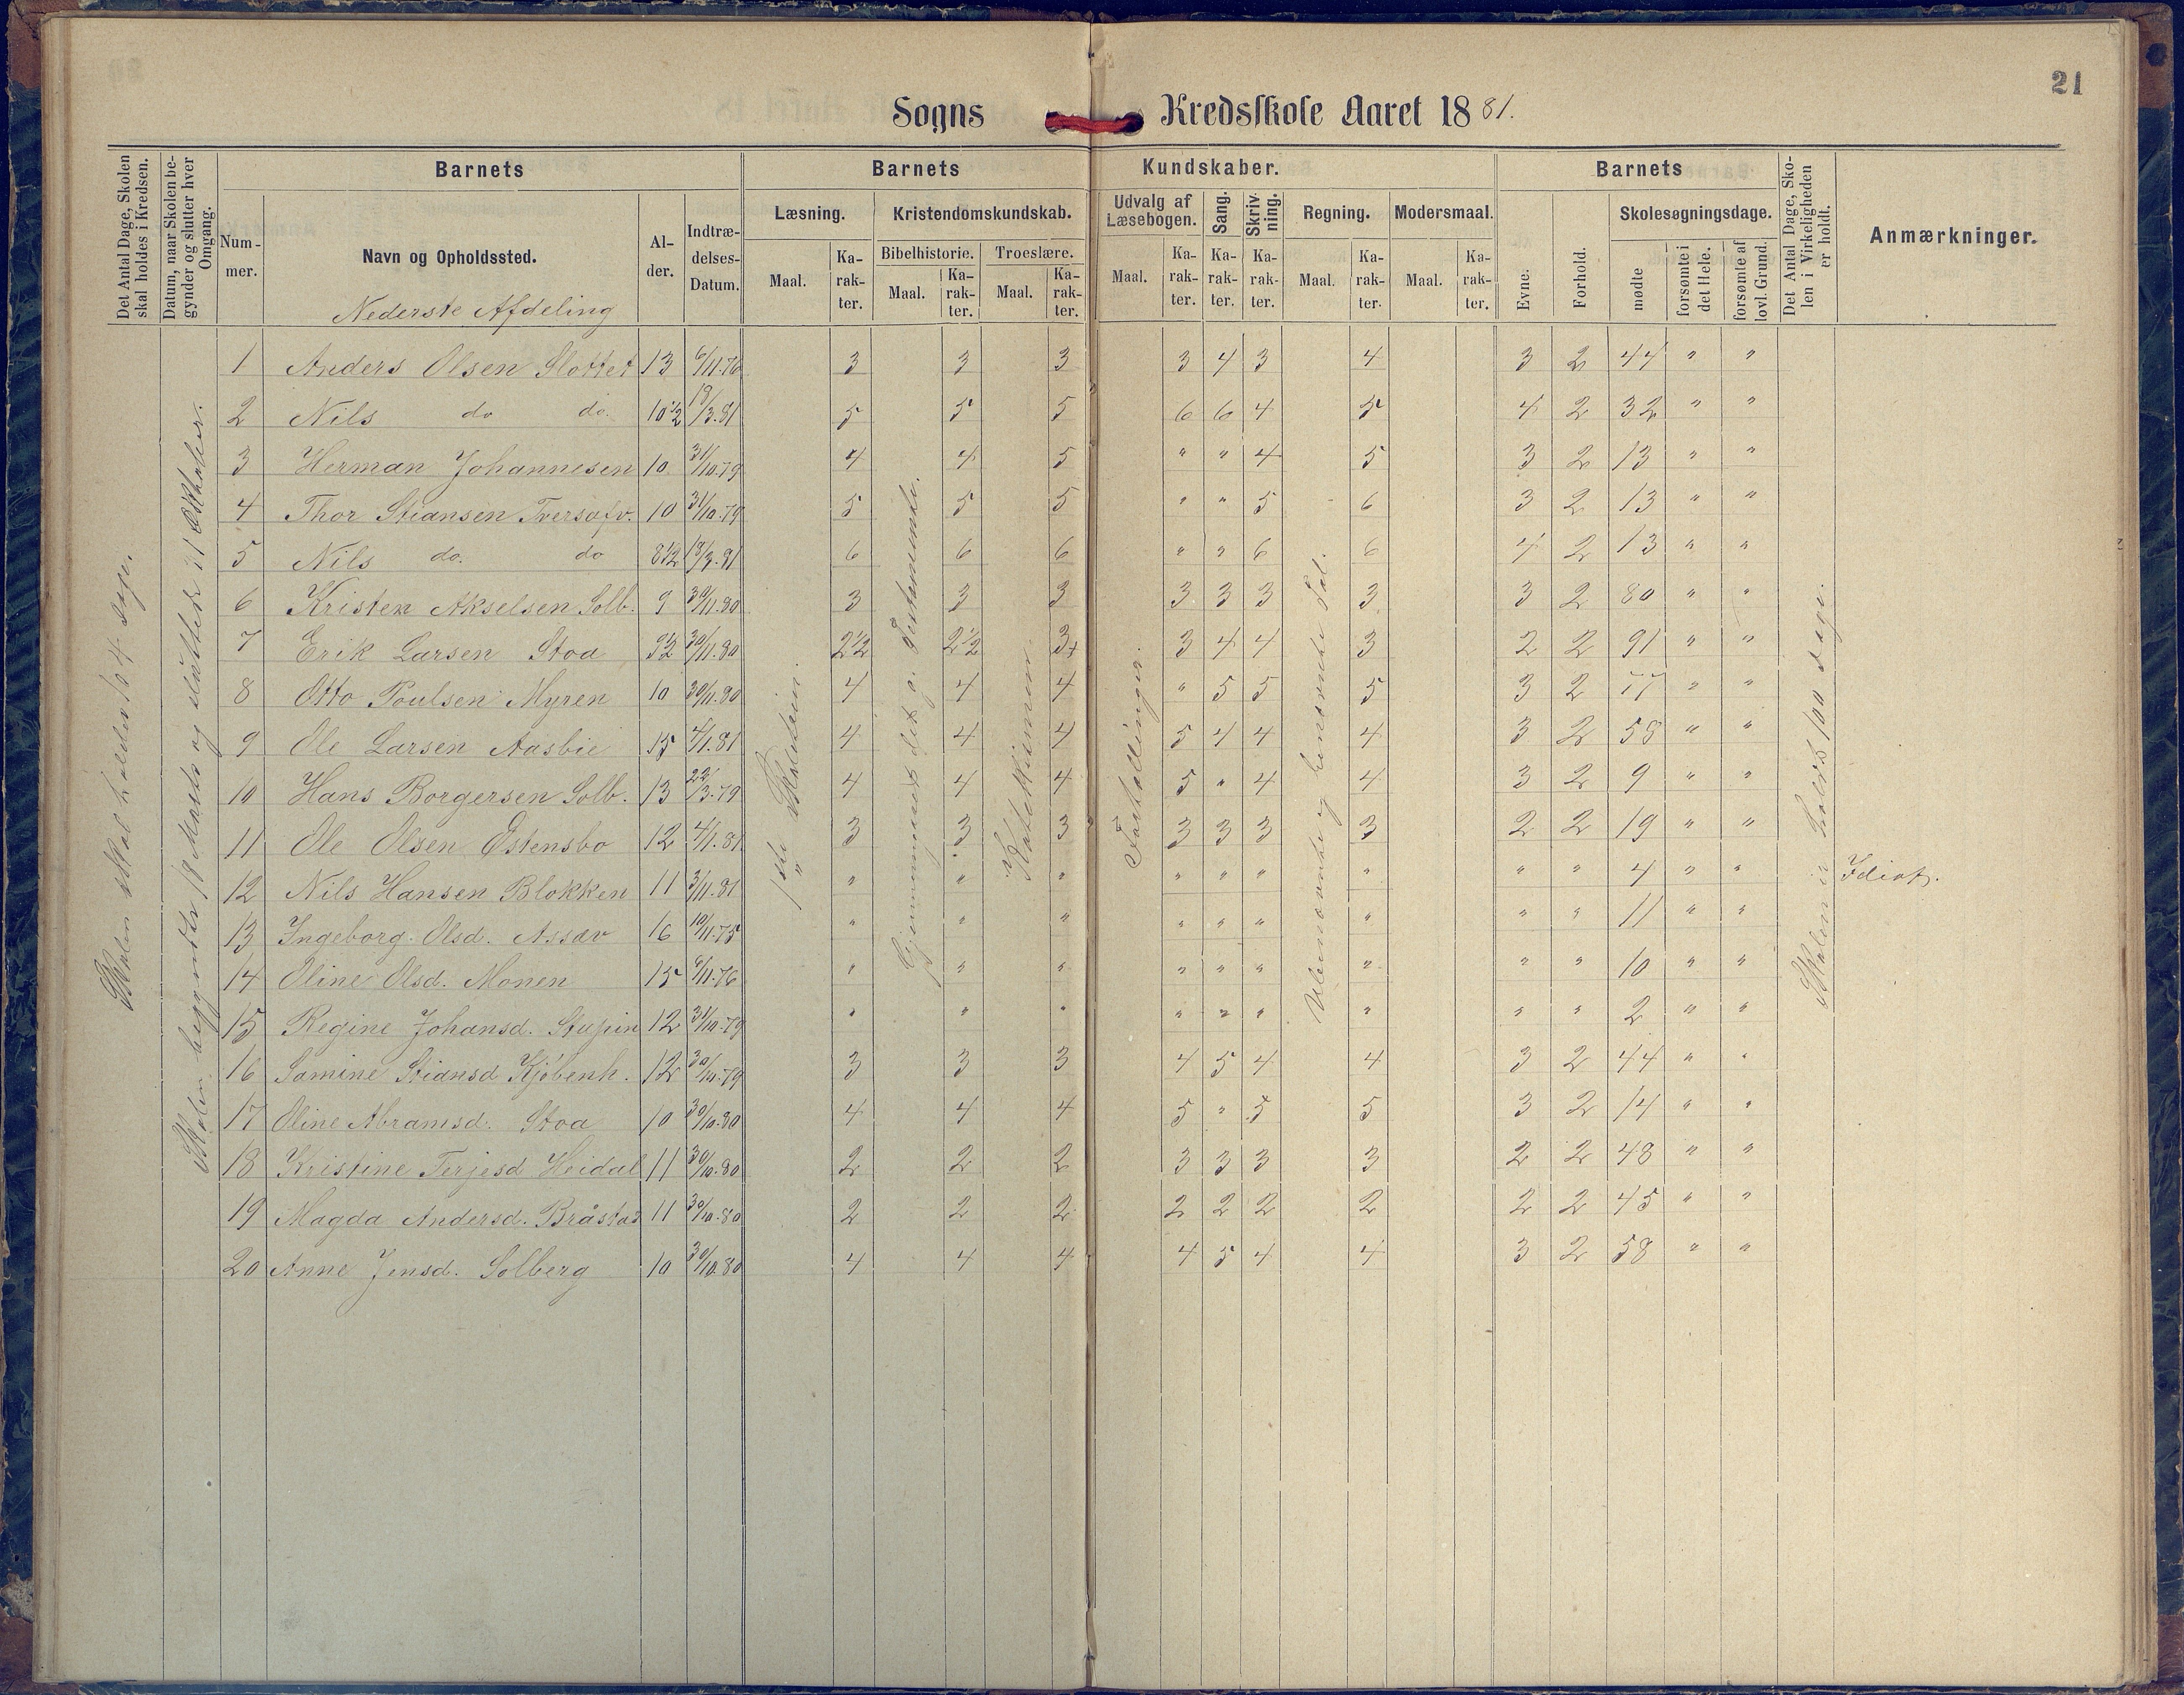 21
Sogns Kredsskole Aaret 1881.
Det Antal Dage, Skolen skal holdes i Kredsen.
Datum, naar Skolen be-
gynder og slutter hver
Omgang.
Barnets
Num-
mer.
Navn og Opholdssted.
Nederste Afdeling
Al-
der.
Indtræ-
delses-
Datum.
Barnets Kundskaber.
Læsning.
Maal.
Ka-
rak-
ter.
Kristendomskundskab.
Bibelhistorie.
Maal.
Ka-
rak-
ter.
Troeslære.
Maal.
Ka-
rak-
ter.
Udvalg af
Læsebogen.
Maal.
Ka-
rak-
ter.
Sang.
Ka-
rak-
ter.
Skriv-
ning.
Ka-
rak-
ter.
Regning.
Maal.
Ka-
rak-
ter.
Modersmaal.
Maal.
Ka-
rak-
ter.
Barnets
Evne.
Forhold.
Skolesøgningsdage.
mødte
forsømte i
det Hele.
forsømte af
lovl. Grund.
Det Antal Dage, Sko-
len i Virkeligheden
er holdt.
Anmærkninger.
Skolen skal holdes 104 dage.
Skolen begyndte 18 Marts og sluttede 31 Oktober.
1ste Skoletrin.
Gjennemgaaet det g. Testamente.
Katekismen.
Fortællinger.
Ubenævnte og benævnte Tal.
Skolen er holdt 100 dage.
1 Anders Olsen Slottet 13 6/11.76 3 3 3 3 4 3 4 3 2 44 " "
2 Nils do do. 10 1/2 18/3.81 5 5 5 6 6 4 5 4 2 32 " "
3 Herman Johannesen 10. 31/10.79 4 4 5 " " 4 5 3 2 13 " "
4 Thor Stiansen 10 31/10.79 5 5 5 " " 5 6 3 2 13 " "
5 Nils do. do 8 1/2 18/3.81 6 6 6 " " 6 6 4 2 13 " "
6 Kristen Akselsen Solb. 9 30/11.80 3 3 3 3 3 3 3 3 2 80 " "
7 Erik Larsen Stoa 9 1/2 30/11.80 2 1/2 2 1/2 3+ 3 4 4 3 2 2 91 " "
8 Otto Poulsen Myren 10 30/11.80 4 4 4 " 5 5 5 3 2 77 " "
9 Ole Larsen Aasbie 15 4/1.81 4 4 4 5 4 4 4 3 2 58 " "
10 Hans Borgersen Solb. 13 22/3.79 4 4 4 5 " 4 4 3 2 9 " "
11 Ole Olsen Østensbo 12 4/1.81 3 3 3 3 3 3 3 2 2 19 " "
12 Nils Hansen Blokken 11 3/11.81 " " " " " " " " " 4 " " Idiot.
13 Ingeborg Olsd. Assæv 16 10/11.75 " " " " " " " " " 11 " "
14 Oline Olsd. Monen 15 6/11.76 " " " " " " " " " 10 " "
15 Regine Johansd. 12 31/10.79 " " " " " " " " " 2 " "
16 Samine Stiansd Kjøbenh. 12 30/10.79 3 3 3 4 5 4 4 3 2 44 " "
17 Oline Abramsd. Stoa 10 30/10.80 4 4 4 5 " 5 5 3 2 14 " "
18 Kristine Terjesd Heidal 11 30/10.80 2 2 2 3 3 3 3 2 2 48 " "
19 Magda Andersd. Bråstad 11 30/10.80 2 2 2 2 2 2 2 2 2 45 " "
20 Anne Jensd. Solberg 10 30/10.80 4 4 4 4 5 4 4 3 2 58 " "